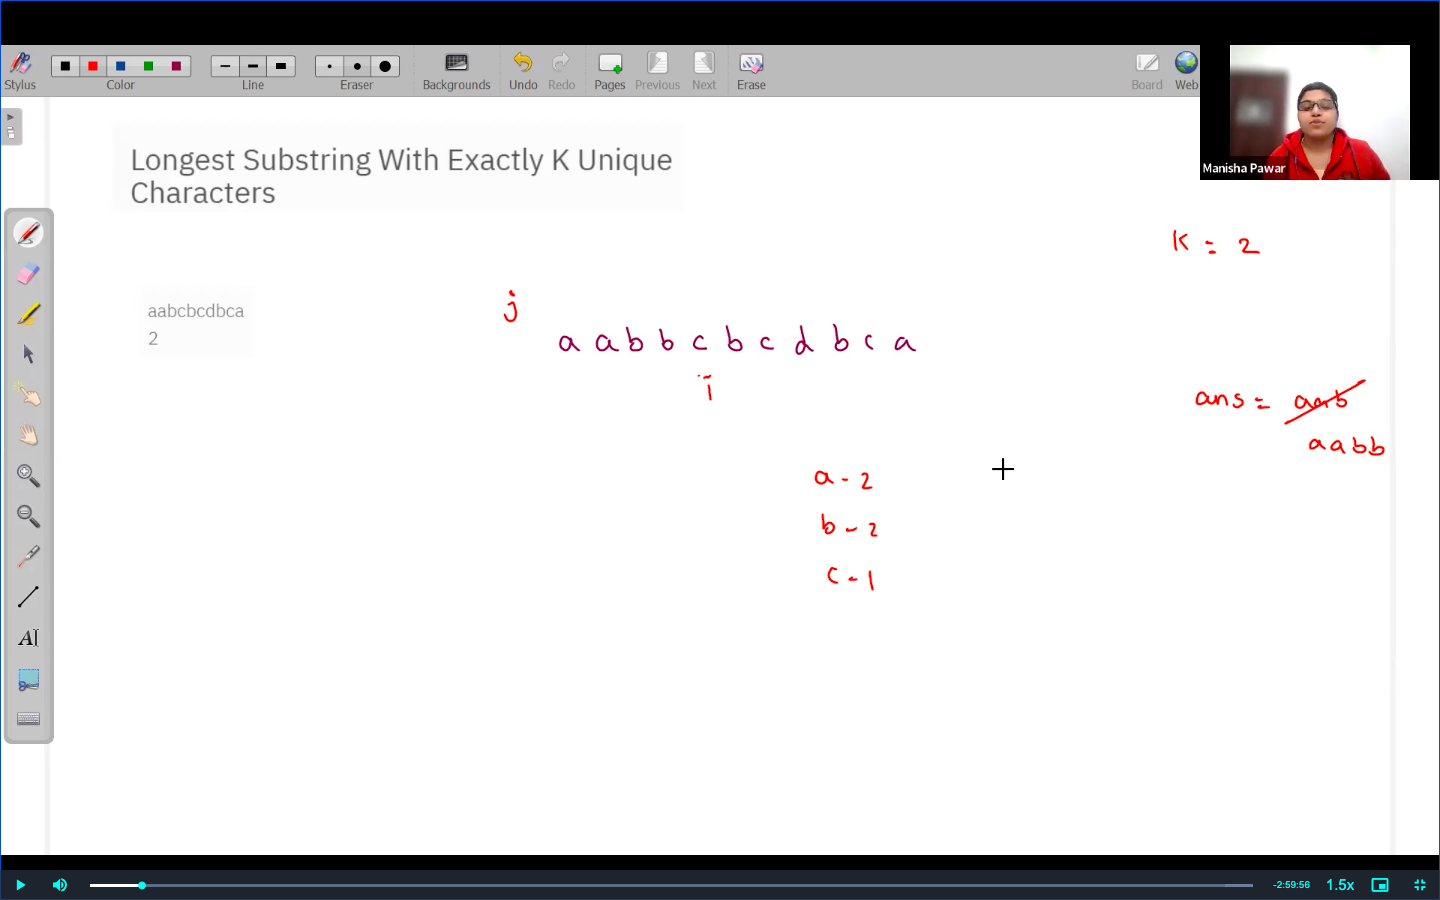 Stylus
Color
Line
Eraser
Backgrounds
Undo
Redo
Pages
Previous
Next
Erase
Board
Web
Manisha Pawar
Longest Substring With Exactly K Unique
Characters
K = 2
aabcbcdbca
2
j
a a b b c b c d b c a
i
ans = aab
aabb
a - 2
b - 2
c - 1
AI
-2:59:56
1.5x